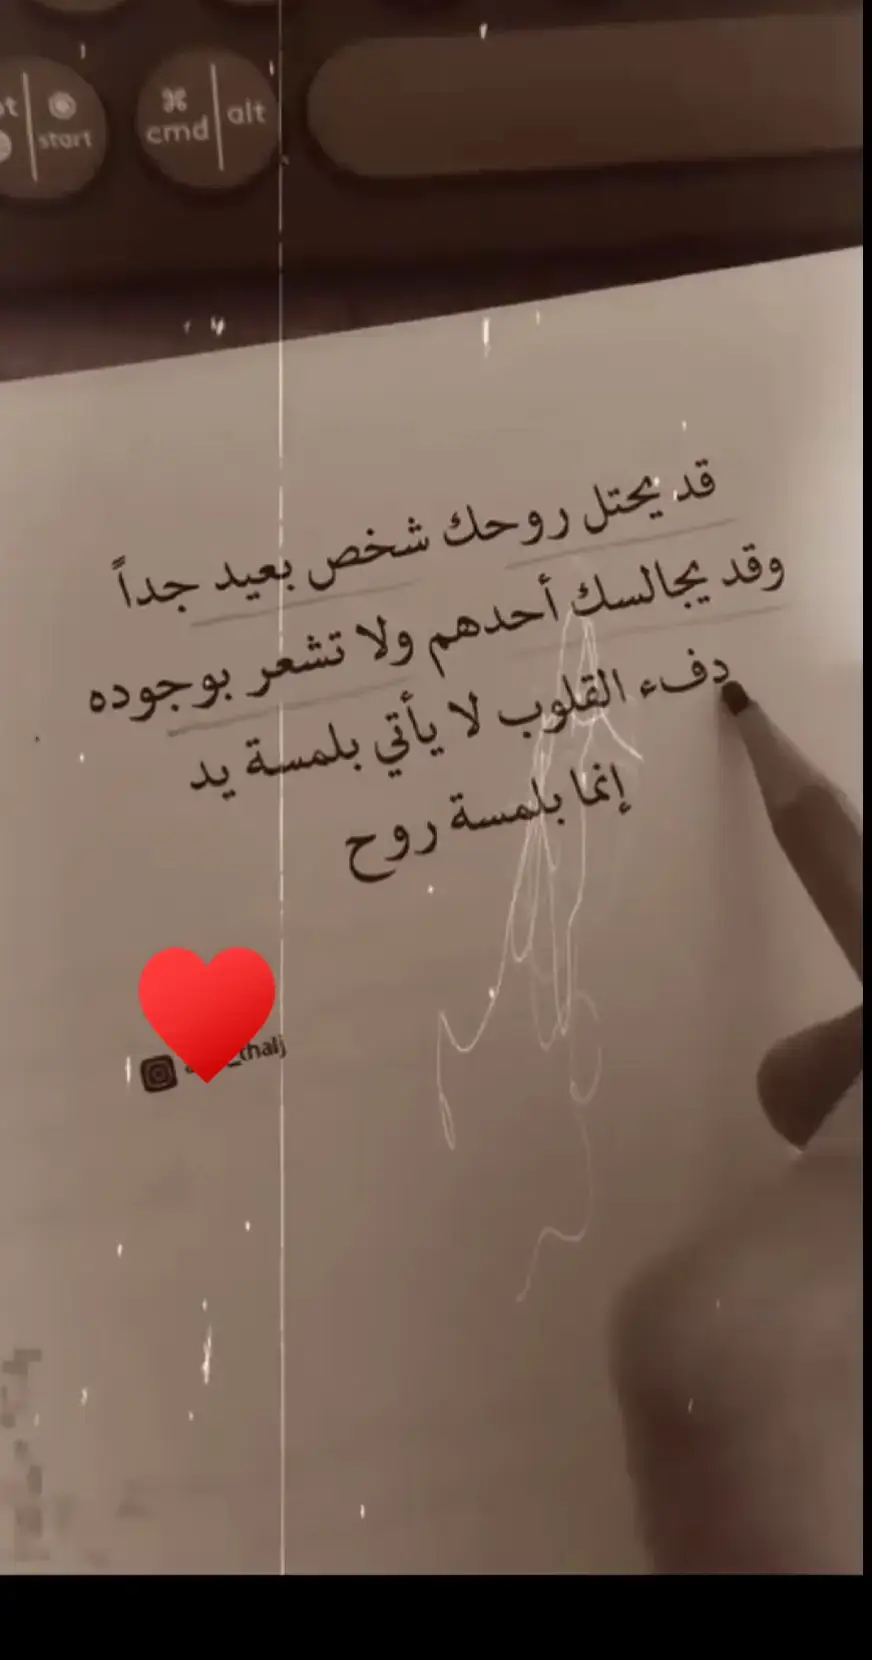 start
cmd alt
قد يحتل روحك شخص بعيد جداً
وقد يجالسك أحدهم ولا تشعر بوجوده
دفء القلوب لا يأتي بلمسة يد
إنما بلمسة روح